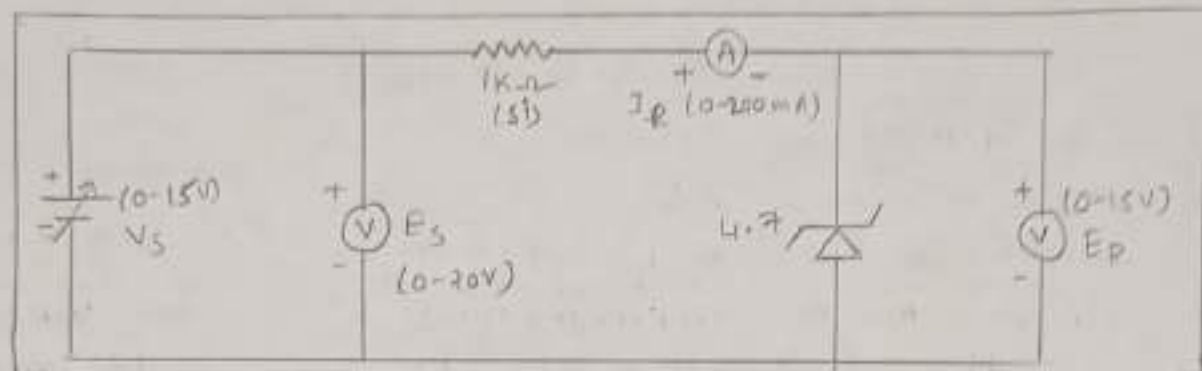 1K Ω
A
+ -
I_R (0-200mA)
+
(0-15V)
-
V_S
+
V
E_S
-
(0-20V)
4.7
+
(0-15V)
V
E_R
-